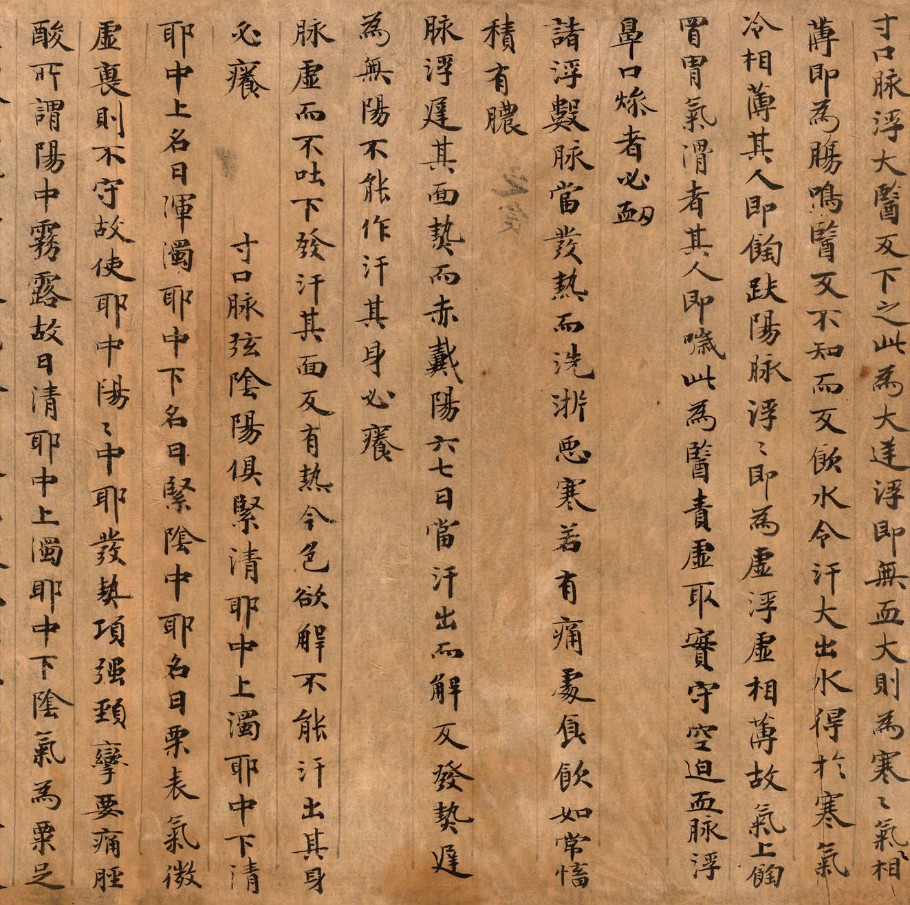 寸口脉浮大醫反下之此為大逆浮即無血大則為寒〻氣相
薄即為腸鳴醫反不知而反飲水令汗大出水得於寒氣
冷相薄其人即䭇趺陽脉浮〻即為虛浮虛相薄故氣上䭇
胃胃氣滑者其人即噦此為醫責虛取實守空迫血脉浮
鼻口燥者必衂
諸浮數脉當發熱而洗淅惡寒若有痛處食飲如常慉
積有膿
之矣
脉浮遲其面熱而赤戴陽六七日當汗出而解反發熱遲
為無陽不能作汗其身必癢
脉虛而不吐下發汗其面反有熱令色欲解不能汗出其身
必癢
寸口脉弦陰陽俱緊清耶中上濁耶中下清
耶中上名曰渾濁耶中下名曰緊陰中耶名曰栗表氣微
虛裏則不守故使耶中陽〻中耶發熱項强頚攣要痛脛
酸所謂陽中霧露故曰清耶中上濁耶中下陰氣為栗足